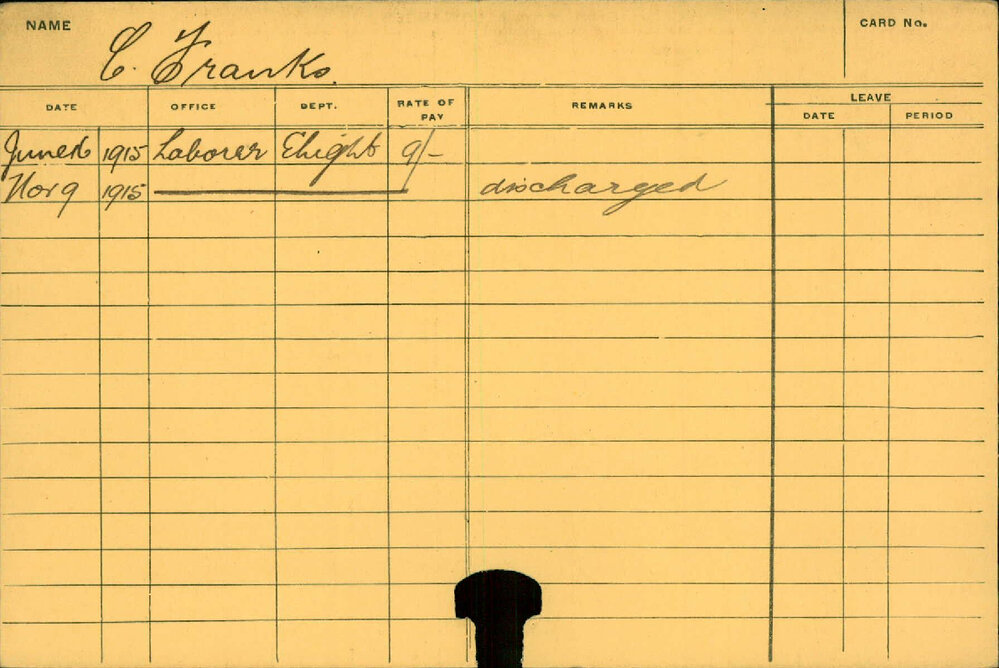 NAME
CARD No.
C. Franks.
DATE OFFICE DEPT. RATE OF PAY REMARKS LEAVE
DATE PERIOD
June 16 1915 Laborer Elight 9/-
Nov 9 1915 discharged